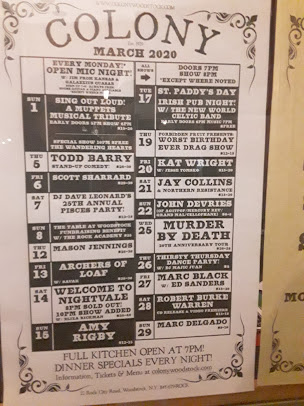 WWW.COLONYWOODSTOCK.COM
COLONY
MARCH 2020
EVERY MONDAY!
OPEN MIC NIGHT!
ALL SHOWS
DOORS 7PM
SHOW 8PM
*EXCEPT WHERE NOTED
SUN 1
SING OUT LOUD!
A MUPPETS
MUSICAL TRIBUTE
EARLY DOORS 4PM SHOW 5PM
THU 5
TODD BARRY
STAND-UP COMEDY
FRI 6
SCOTT SHARRARD
SAT 7
DJ DAVE LEONARD'S
25TH ANNUAL
PISCES PARTY!
SUN 8
THE TABLE AT WOODSTOCK
FUNDRAISING BENEFIT
THU 12
MASON JENNINGS
FRI 13
ARCHERS OF
LOAF
SAT 14
WELCOME TO
NIGHTVALE
SUN 15
AMY
RIGBY
TUE 17
ST. PADDY'S DAY
IRISH PUB NIGHT!
W/ THE NEW WORLD
CELTIC BAND
THU 19
FORBIDDEN FRUIT PRESENTS
WORST BIRTHDAY
EVER DRAG SHOW
FRI 20
KAT WRIGHT
SAT 21
JAY COLLINS
& NORTHERN RESISTANCE
SUN 22
JOHN DEVRIES
WED 25
MURDER
BY DEATH
20TH ANNIVERSARY TOUR
THU 26
THIRSTY THURSDAY
DANCE PARTY!
W/ DJ MAJIC JUAN
FRI 27
MARC BLACK
W/ ED SANDERS
SAT 28
ROBERT BURKE
WARREN
CD RELEASE & VIDEO PREMIERE
SUN 29
MARC DELGADO
FULL KITCHEN OPEN AT 7PM!
DINNER SPECIALS EVERY NIGHT!
Information, Tickets & Menu at colonywoodstock.com
22 Rock City Road, Woodstock, N.Y.